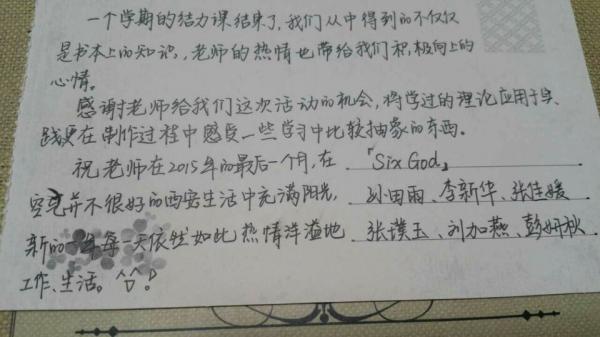 一个学期的结力课结束了,我们从中得到的不仅仅
是书本上的知识,老师的热情也带给我们积极向上的
心情。
感谢老师给我们这次活动的机会,将学过的理论应用于实
践更在制作过程中感受一些学习中比较抽象的东西。
祝老师在2015年的最后一个月,在 「Six God」
空气并不很好的西安生活中充满阳光, 孙田雨、李新华、张佳媛
新的一年每一天依然如此热情洋溢地 张璞玉、刘加燕、彭妍秋
工作、生活。^0^!